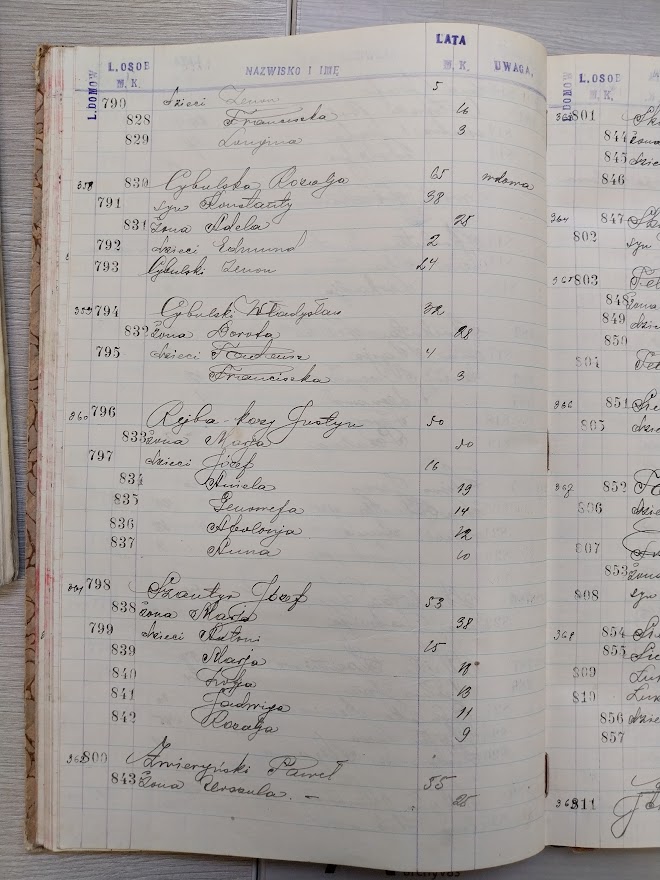 L. DOMÓW L. OSOB M. K. NAZWISKO I IMĘ LATA M. K. UWAGA.
790 dzieci Zenon 5
828 Franciszka 16
829 Longina 3
358 830 Cybulska Rozalja 65 wdowa
791 syn Konstanty 38
831 żona Adela 25
792 dzieci Edmund 2
793 Cybulski Zenon 24
359 794 Cybulski Władysław 32
832 żona Dorota 28
795 dzieci Tadeusz 4
Franciszka 3
360 796 Rejba-Kozy Justyn 50
833 żona Marja 50
797 dzieci Józef 16
834 Aniela 19
835 Genowefa 14
836 Apolonja 12
837 Anna 10
361 798 Szantyr Józef 53
838 żona Marja 38
799 dzieci Antoni 15
839 Marja
840 Zofja 13
841 Jadwiga 11
842 Rozalja 9
362 800 Zwieryński Paweł 55
843 żona Urszula. — 25
L. DOMÓW L. OSOB M. K.
363 801
844 żona
845 dzieci
846
364 847
802 syn
365 803
848 żona
849 dzieci
850
804
366 851
805 dzieci
367 852
806 dzieci
807
853 żona
808 syn
854
855
809
810
856 dzieci
857
811
archyvas